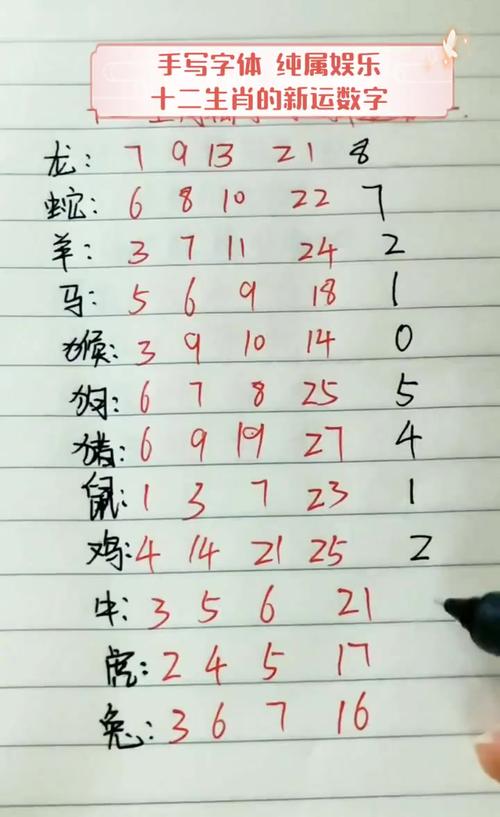 手写字体 纯属娱乐
十二生肖的新运数字
龙: 7 9 13 21 8
蛇: 6 8 10 22 7
羊: 3 7 11 24 2
马: 5 6 9 18 1
猴: 3 9 10 14 0
狗: 6 7 8 25 5
猪: 6 9 19 27 4
鼠: 1 3 7 23 1
鸡: 4 14 21 25 2
牛: 3 5 6 21
虎: 2 4 5 17
兔: 3 6 7 16